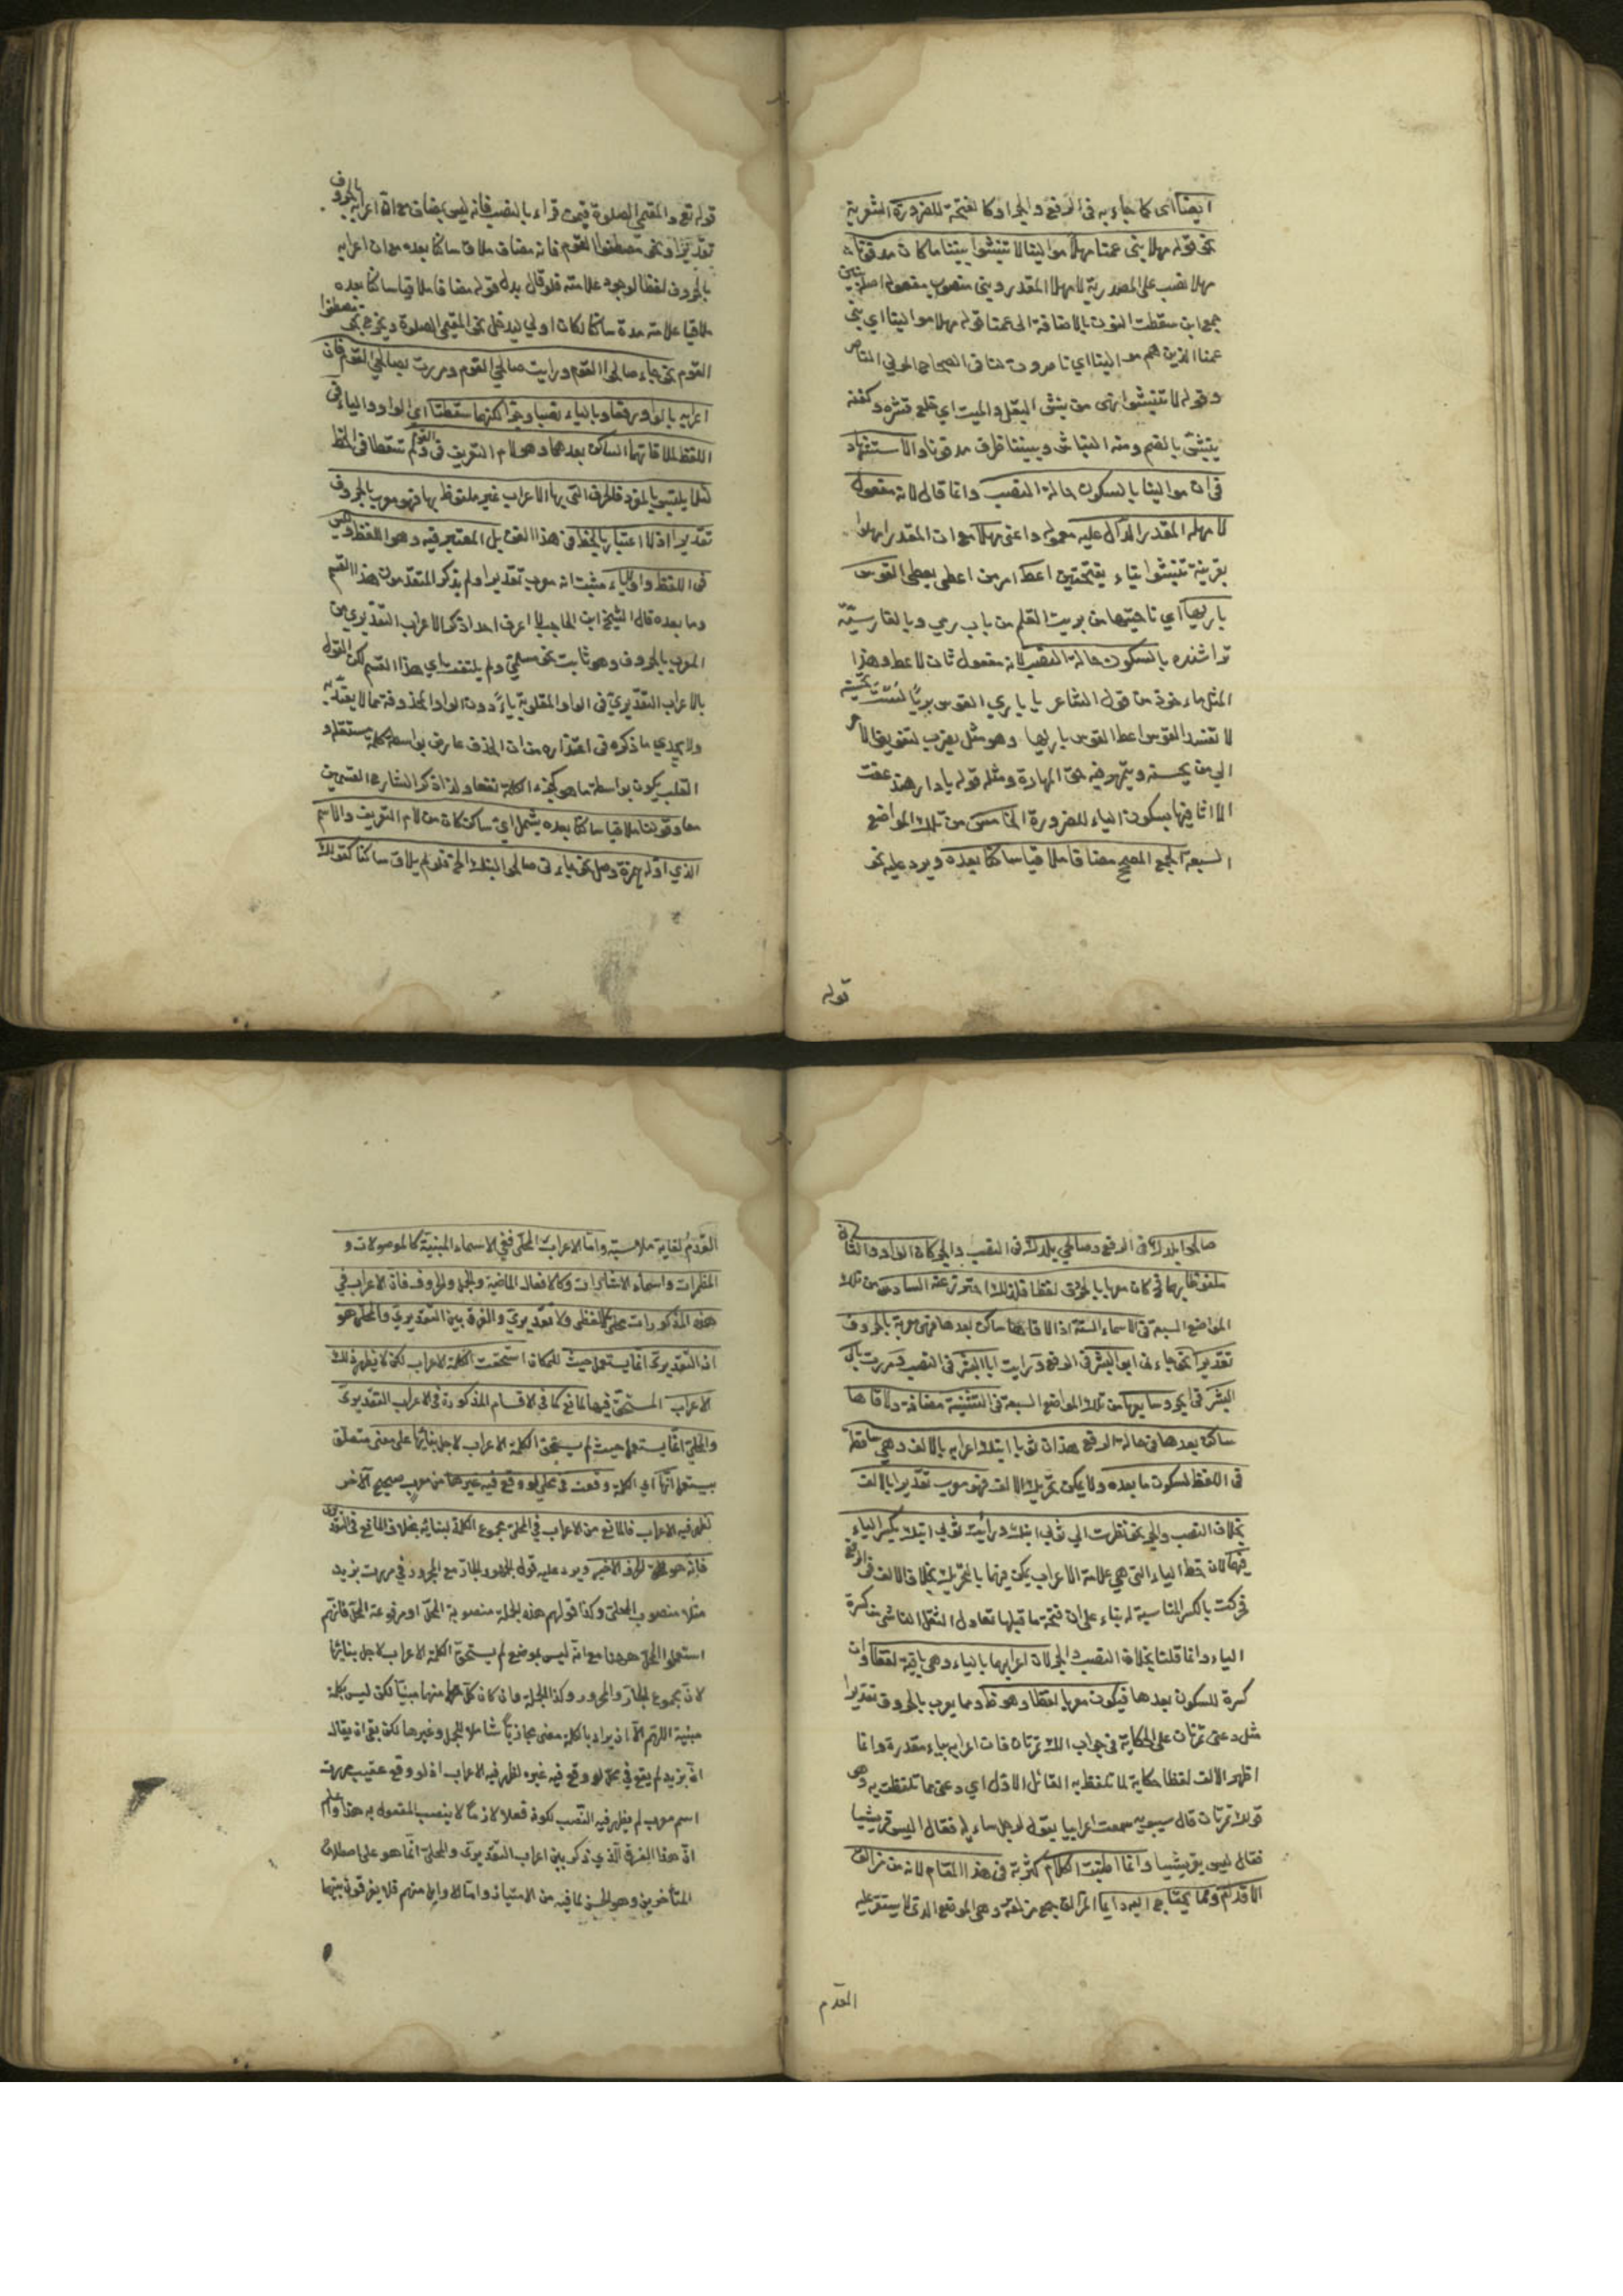 ايضا اى كما جاء به فى الرفع والجر اوكا لفتحة للضرورة الشعرية
نحو قوله مهلا بنى عمنا مهلا موالينا لا تنبشوا بيننا ما كان مدفونا
مهلا نصب على المصدرية لا مهلا المقدر وبنى منصوب مفعوله اصله بنين
جمع ابن سقطت النون بالاضافة الى عمنا قوله مهلا موالينا اي بنى
عمنا الذين هم موالينا اي ناصرون لنا فى الصحاح المولى الناصر
وقوله لا تنبشوا نهى من ينبش البقل والميت اي قلع قشره وكفنه
ينبش بالضم ومنه النباش وبيننا ظرف مدفونا والاستشهاد
فى ان موالينا بالسكون حالة النصب وانما قال لانه مفعول
لا مهله المقدر الدال عليه معموله واعنى مهلا مع ان المقدر امهلوا
بقرينة تنبشوا بتاء بفتحتين اعط امر من اعطى يعطى القوس
باريها اي ناحتها من بريت القلم من باب رمى وبالفارسيّة
تراشنده بالسكون حالة النصب لانه مفعول ثان لاعط وهذا
المثل ماءخوذ من قول الشاعر يا باري القوس بريًا لست تحسنه
لا تفسد القوس اعط القوس باريها وهو مثل يضرب لتفويض الامر
الى من يحسنه ويتمهر فيه حق المهارة ومثله قوله يا دار هند عفت
الا اثافيها بسكون الياء للضرورة الخامس من تلك المواضع
السبعة الجمع المصحح مضافا ملاقيا ساكنا بعده ويرد عليه نحو
قوله
قوله تع والمقيمى الصلوة فيمن قراء بالنصب فانه ليس بمضاف مع ان اعرابه بالحروف
تقديرا ونحو مصطفوا القوم فانه مضاف ملاق ساكنا بعده مع ان اعرابه
بالحروف لفظا لوجود علامته فلو قال بدل قوله مضافا ملاقيا ساكنا بعده
ملاقيا علامته مدة ساكنا لكان اولى ليدخل نحو المقيمى الصلوة ويخرج نحو مصطفوا
القوم نحو جاءنى صالحوا القوم ورايت صالحى القوم ومررت بصالحى القوم فان
اعرابه بالواو رفعا وبالياء نصبا وجرا لكنهما سقطتا اى الواو والياء فى
اللفظ لملاقاتهما الساكن بعدهما وهو لام التعريف فى القوم ولم تسقطا فى الخط
لئلا يلتبس بالمفرد فالحرف التى بها الاعراب غير ملفوظ بها فهو معرب بالحروف
تقديرا اذ لا اعتبار بالخط فى هذا الفن بل المعتبر فيه وهو اللفظ وليس
فى اللفظ واو وياء فثبت انه معرب تقديرا ولم يذكر المتقدمون هذا القسم
وما بعده قال الشيخ ابن الحاجب لا اعرف احدا ذكر الاعراب التقديري من
المعرب بالحروف وهو ثابت نحو مسلمىّ ولم يلتفت باي هذا القسم لكن القول
بالاعراب التقديريّ فى الواو المقلوبة ياءً دون الواو المحذوفة مما لا يعتدّ به
ولا يجدي ما ذكره فى اعتذاره من ان الحذف عارض بواسطة كلمة مستقلة و
القلب يكون بواسطة ما هو كجزء الكلمة نفسها ولذا ذكر الشارح القسمين
معا وقولنا ملاقيا ساكنا بعده يشمل اى ساكن كان من لام التعريف والاسم
الذي اوله همزة وصل نحو جاءنى صالحوا ابنك الخ فلو لم يلاق ساكنا كقولك
صالحوا بلدك فى الرفع وصالحى بلدك فى النصب والجر كان الواو والياء
ملفوظا بهما فكان معربا بالحروف لفظا فلذلك احترز عنه السادس من تلك
المواضع السبعة فى الاسماء الستة اذا لاقاها ساكن بعدها فهى معربة بالحروف
تقديرا نحو جاءنى ابو البشر فى الرفع ورايت ابا البشر فى النصب ومررت بابى
البشر فى الجر وسابعها من تلك المواضع السبعة فى التثنية مضافة ولاقاها
ساكن بعدها فى حالة الرفع هذان ثوبا ابنك اعرابه بالالف وهى ساقط
فى اللفظ لسكون ما بعده ولا يمكن تحريك الالف فهو معرب تقديرا بالالف
بخلاف النصب والجر نحو نظرت الى ثوبى ابنك ورأيت ثوبى ابنك بكسر الياء
فيهما لان خط الياء التى هى علامة الاعراب يمكن فيها بالتحريك بخلاف الالف فى الرفع
فحركت بالكسر المناسبة له بناء على ان فتحة ما قبلها تعادل الثقل الناشى من كسرة
الياء وانما قلنا بخلاف النصب والجر لان اعرابهما بالياء وهى باقية لفظا وان
كسرة للسكون بعدها فيكون معربا لفظا وهو ظ ومما يعرب بالحروف تقديرا
مثل دعنى تمرتان على الحكاية فى جواب الك تمرتان فان اعرابه بياء مقدرة وانما
اظهر الالف لفظا حكاية لما تلفظ به القائل الاول اي دعنى مما تلفظت به وهى
قولك تمرتان قال سيبويه سمعت اعرابيا يقول لرجل ساءله فقال اليس قريشيا
فقال ليس بقريشيا وانما اطنبت الكلام كثرته فى هذا المقام لانه من مزالق
الاقدام ومما يحتاج اليه دايما المزالق جمع مزلقة وهى الموقع الذى لا يستقر عليه
القدم
القدمُ لغاية ملاسته واما الاعراب المحلّى ففى الاسماء المبنيّة كالموصولات و
المظمرات واسماء الاشارات وكالافعال الماضية والجمل والحروف فان الاعراب فى
هذه المذكورات محلى لا لفظى ولا تقديريّ والفرق بين التقديريّ والمحلى هو
ان التقديرى انما يستعمل حيث للمكان استحقت الكلمة الاعراب لكن لا يظهر ذلك
الاعراب المستحق فيها لمانع كما فى الاقسام المذكورة فى الاعراب التقديرىّ
والمحلىّ انما يستعمل حيث لم يستحق الكلمة الاعراب لاجل بنائها على معنى متعلق
بيستعمل انّها اى الكلمة وقعت فى محل لو وقع فيه غيرها من معرب صحيح الآخر
لظهر فيه الاعراب فالمانع من الاعراب فى المحلىّ مجموع الكلمة لبنائه بخلاف المانع فى التقديرى
فانه هو الحرف الاخير ويرد عليه قول الجمهور الجار مع المجرور فى مررت بزيد
مثلا منصوب المحلى وكذا قولهم هذه الجملة منصوبة المحلّ او مرفوعة المحلّ فانهم
استعملوا المحل ههنا مع انه ليس بموضع لم يستحق الكلمة الاعراب لاجل بنائها
لان مجموع الجار والمجرور وكذا الجملة وان كان كل منهما مبنيّا لكن ليس بكلمة
مبنية اللهّم الّا ان يراد بالكلمة معنى مجازيّاً شاملا للجمل وغيرها لكن بقى ان يقال
انّ بزيد لم يقع فى محل لو وقع فيه غيره لظهر فيه الاعراب اذ لو وقع عقيب مررت
اسم معرب لم يظهر فيه النّصب لكونه فعلا لازماً لا ينصب المفعول به هذا واعلم
انّ هذا الفرق الّذي ذكر بين اعراب التقديرىّ والمحلىّ انّما هو على اصطلاح
المتأخرين وهو الحسن لما فيه من الامتياز وامّا الاوايل منهم فلا يفرقون بينهما